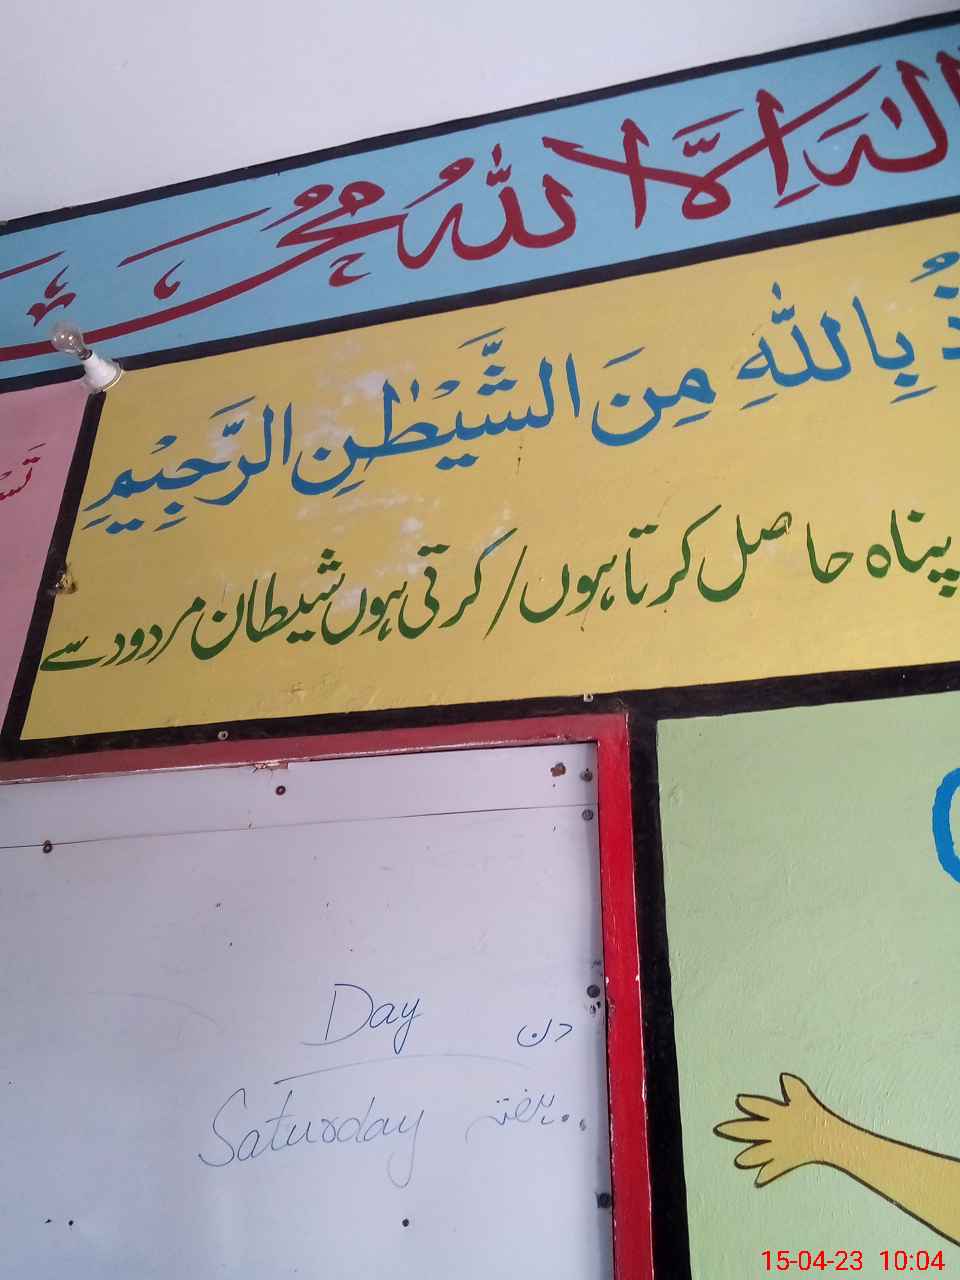 الٰہَ اِلَّا اللهُ مُحَمَّ
ذُ بِاللّٰهِ مِنَ الشَّيْطٰنِ الرَّجِيْمِ
پناہ حاصل کرتا ہوں/کرتی ہوں شیطان مردود سے
Day دن
Saturday ہفتہ
15-04-23 10:04